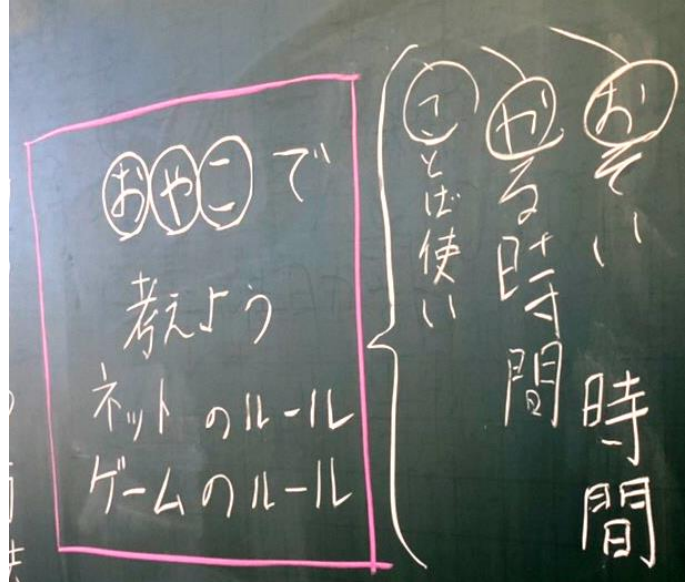 おそい 時間
やる時間
ことば使い
おやこで
考えよう
ネットのルール
ゲームのルール